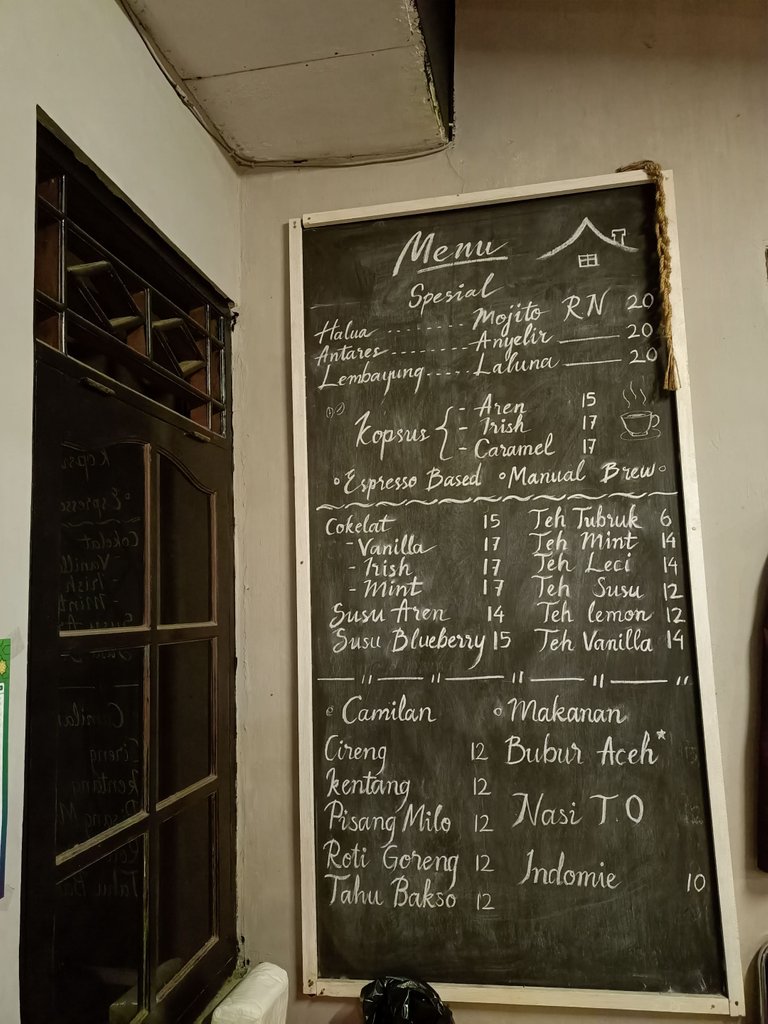 Menu
Spesial
Halua ------- Mojito RN 20
Antares -------- Anyelir —— 20
Lembayung ----- Laluna —— 20
Kopsus { - Aren 15
- Irish 17
- Caramel 17
◦Espresso Based ◦Manual Brew◦
Cokelat 15
- Vanilla 17
- Irish 17
- Mint 17
Susu Aren 14
Susu Blueberry 15
Teh Tubruk 6
Teh Mint 14
Teh Leci 14
Teh Susu 12
Teh lemon 12
Teh Vanilla 14
◦ Camilan
Cireng 12
kentang 12
Pisang Milo 12
Roti Goreng 12
Tahu Bakso 12
◦ Makanan
Bubur Aceh*
Nasi T.O
Indomie 10